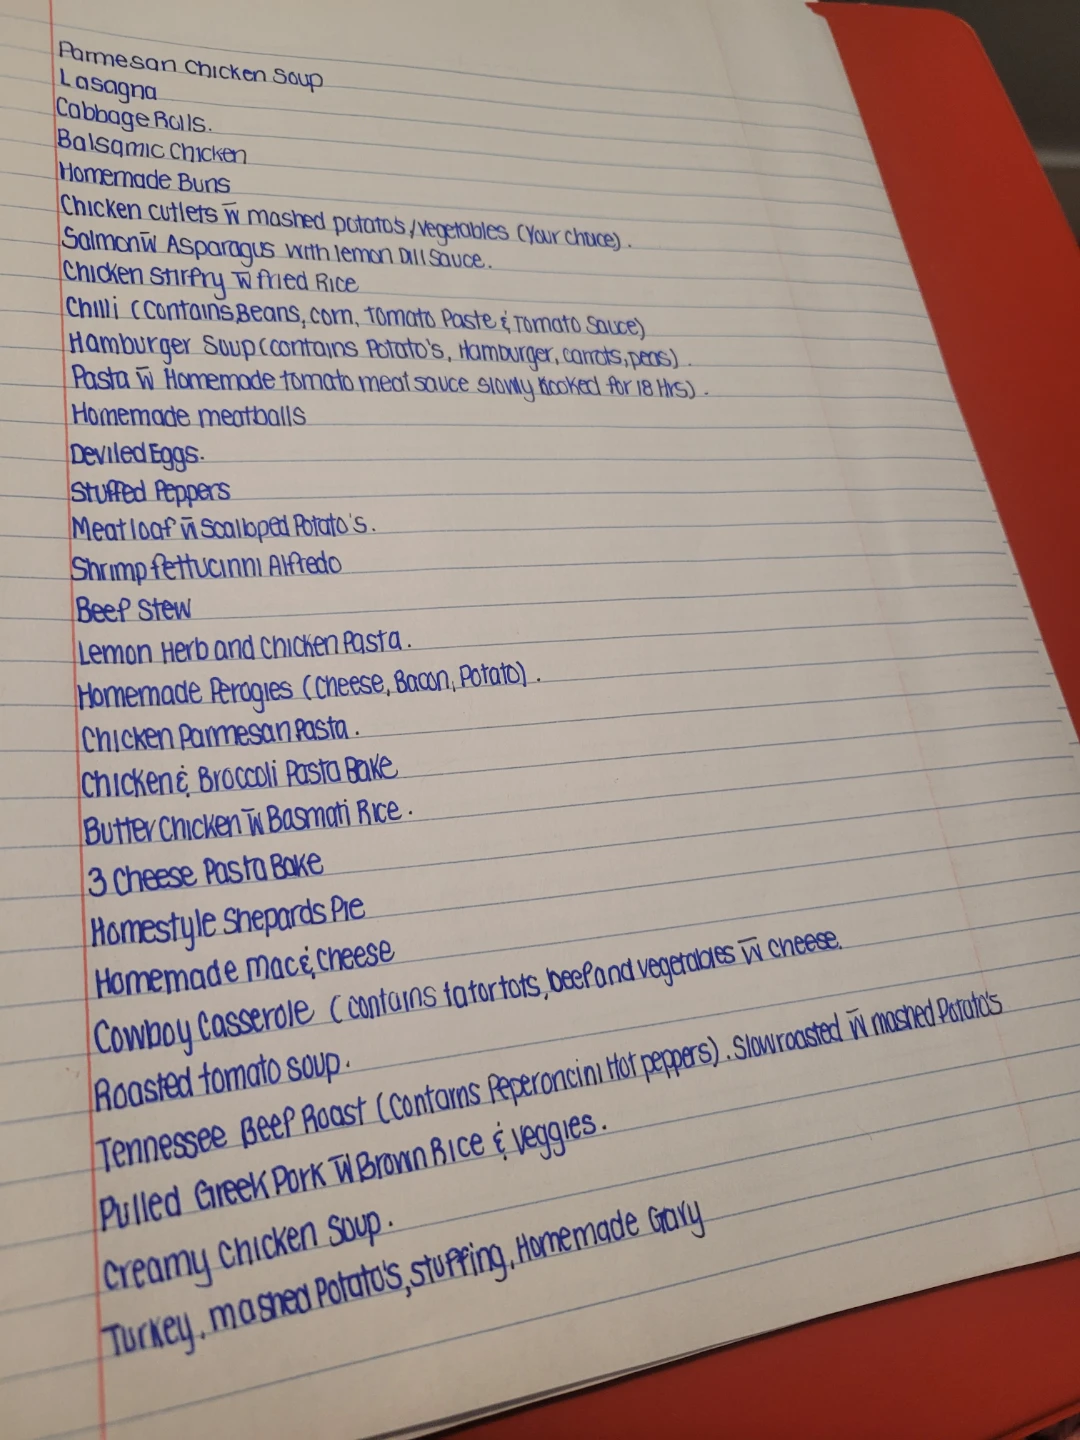 Parmesan Chicken Soup
Lasagna
Cabbage Rolls.
Balsamic Chicken
Homemade Buns
Chicken cutlets w̄ mashed potato's/vegetables (Your choice).
Salmon w̄ Asparagus with lemon Dill Sauce.
Chicken Stirfry w̄ fried Rice
Chilli (Contains Beans, corn, tomato Paste & Tomato Sauce)
Hamburger Soup (contains Potato's, Hamburger, carrots, peas).
Pasta w̄ Homemade tomato meat sauce slowly (cooked for 18 Hrs).
Homemade meatballs
Deviled Eggs.
Stuffed Peppers
Meatloaf w̄ Scalloped Potato's.
Shrimp fettucinni Alfredo
Beef Stew
Lemon Herb and Chicken Pasta.
Homemade Perogies (Cheese, Bacon, Potato).
Chicken Parmesan Pasta.
Chicken & Broccoli Pasta Bake
Butter Chicken w̄ Basmati Rice.
3 Cheese Pasta Bake
Homestyle Shepards Pie
Homemade mac & cheese
Cowboy Casserole (contains tatortots, beef and vegetables w̄ cheese.
Roasted tomato soup.
Tennessee Beef Roast (Contains Peperoncini Hot peppers). Slow roasted w̄ mashed Potato's
Pulled Greek Pork w̄ Brown Rice & veggies.
Creamy Chicken Soup.
Turkey, mashed Potato's, stuffing, Homemade Gavy